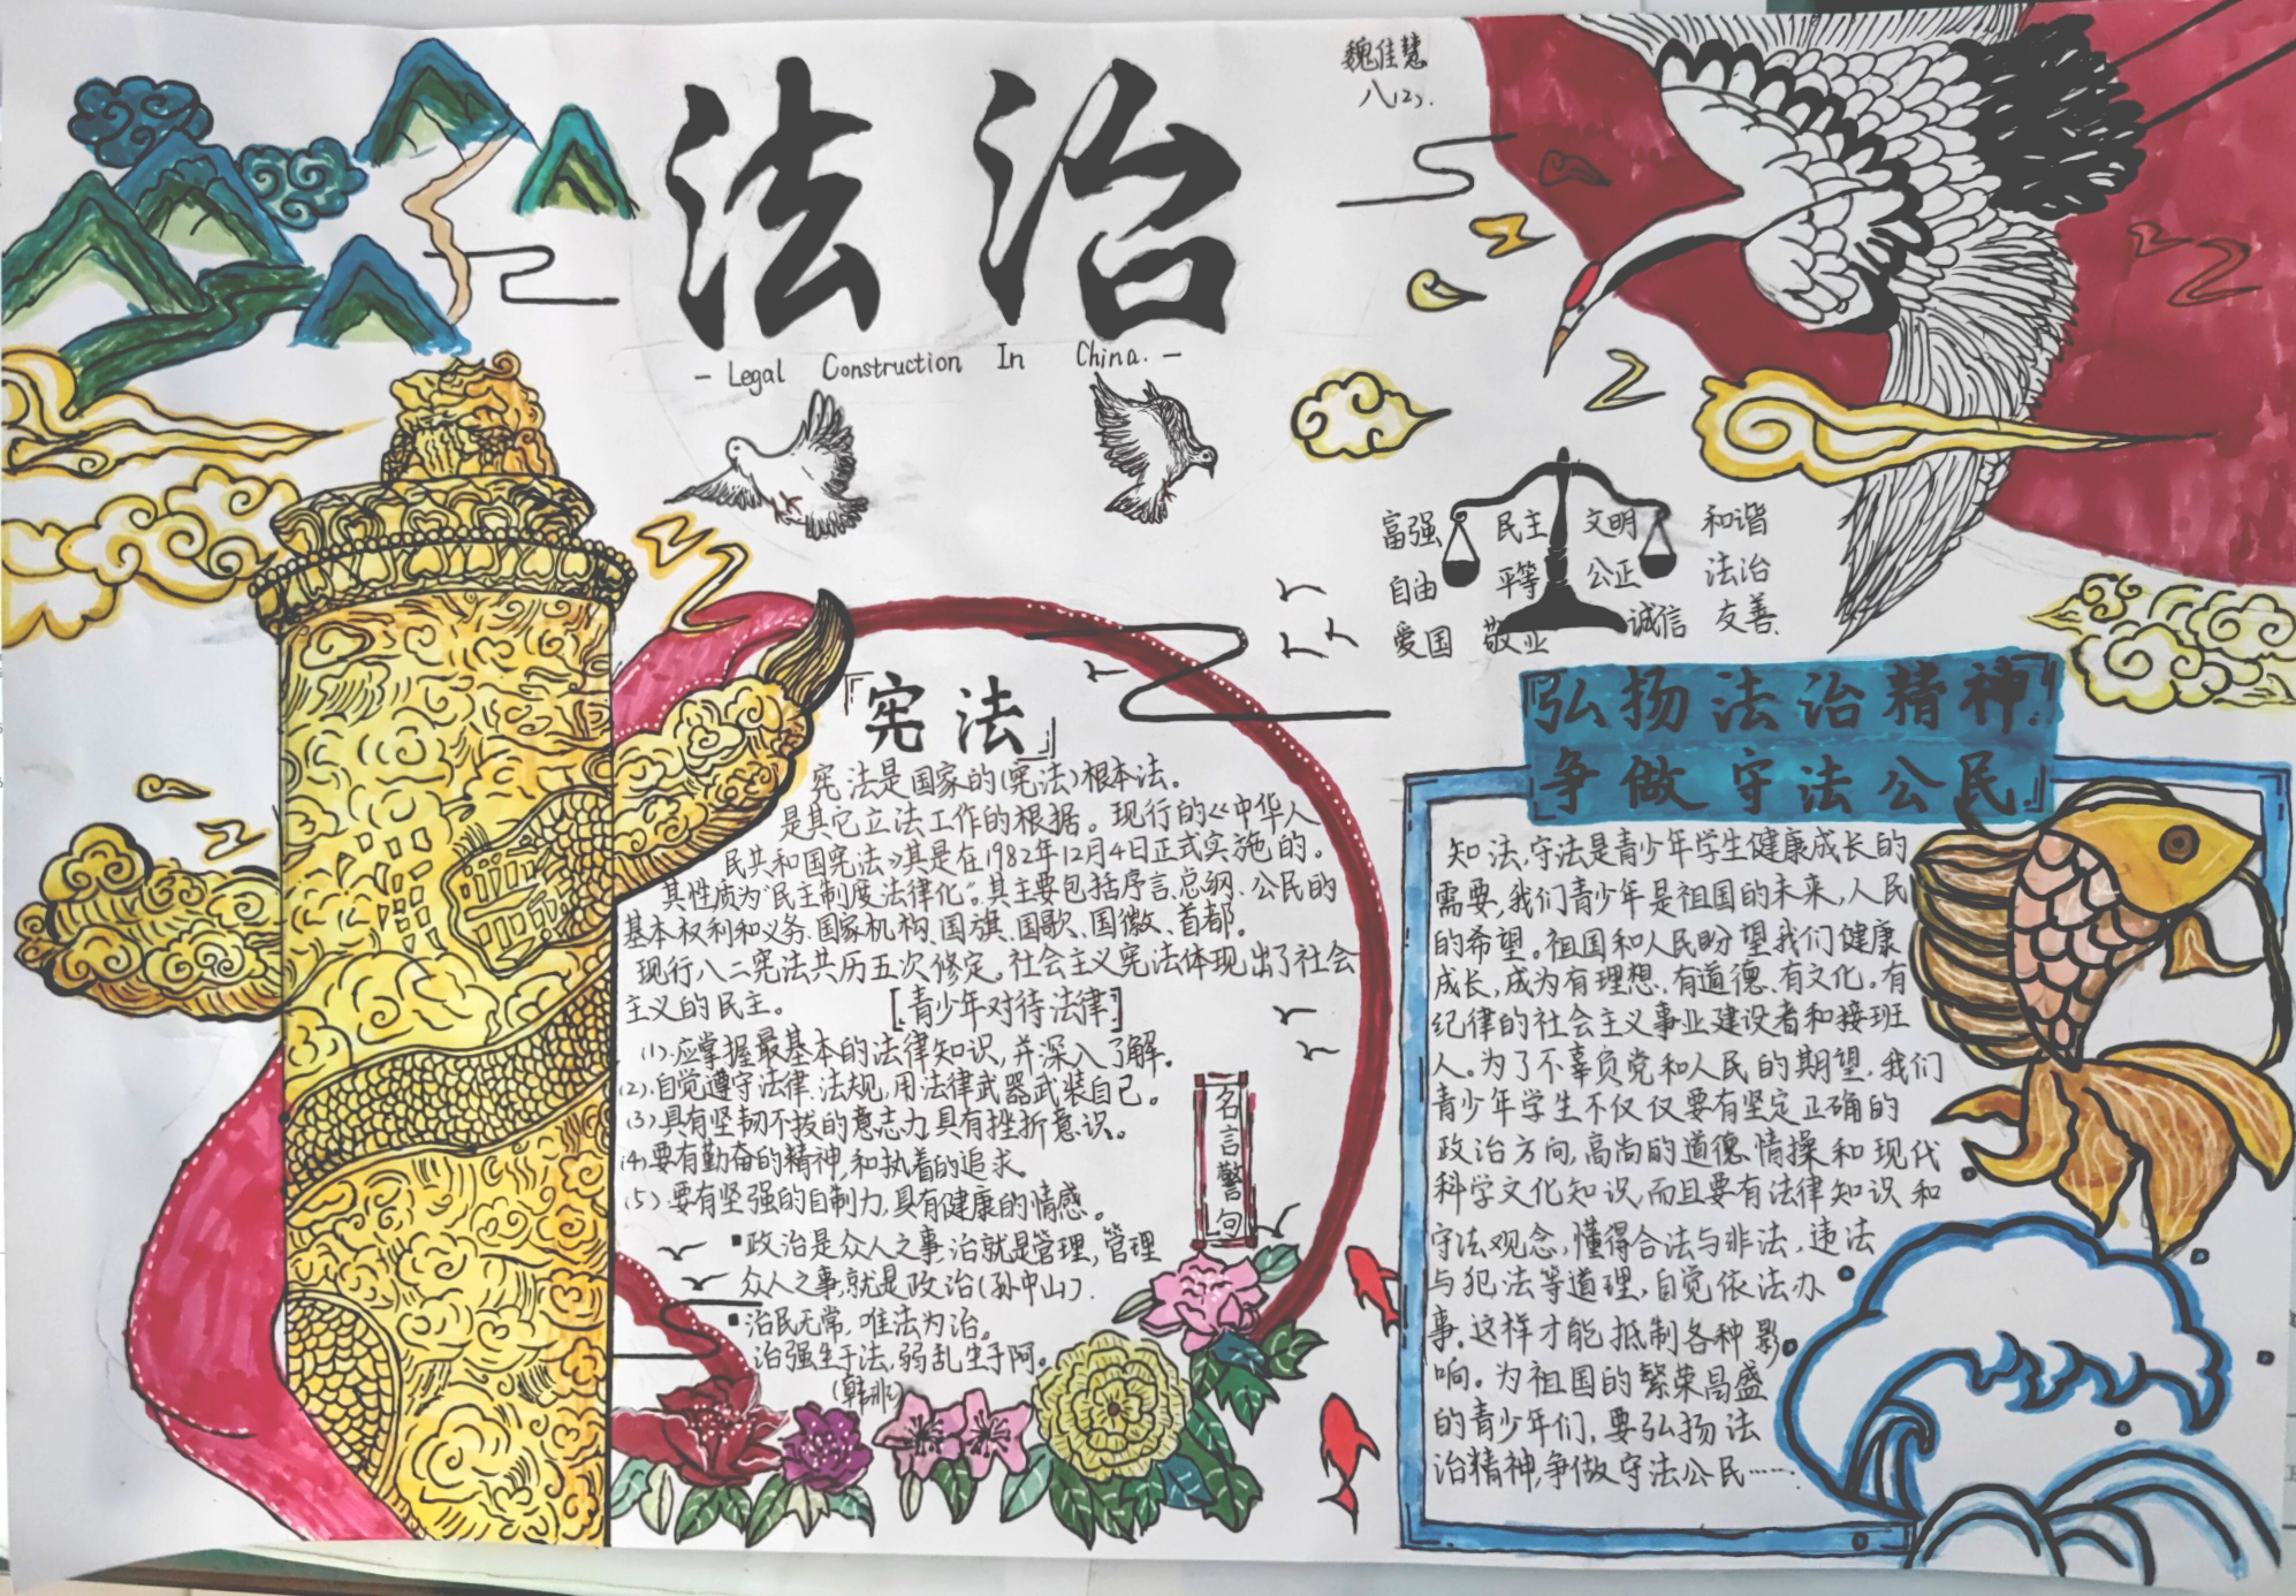 法治
- Legal Construction In China. -
魏佳慧
八(2).
富强 民主 文明 和谐
自由 平等 公正 法治
爱国 敬业 诚信 友善
『宪法』
宪法是国家的(宪法)根本法。
是其它立法工作的根据。现行的《中华人
民共和国宪法》其是在1982年12月4日正式实施的。
其性质为"民主制度法律化"。其主要包括序言、总纲、公民的
基本权利和义务、国家机构、国旗、国歌、国徽、首都。
现行八二宪法共历五次修定。社会主义宪法体现出了社会
主义的民主。
[青少年对待法律]
(1).应掌握最基本的法律知识,并深入了解。
(2).自觉遵守法律、法规,用法律武器武装自己。
(3).具有坚韧不拔的意志力,具有挫折意识。
(4)要有勤奋的精神,和执着的追求。
(5).要有坚强的自制力,具有健康的情感。
名言警句
▪政治是众人之事,治就是管理,管理
众人之事,就是政治(孙中山).
▪治民无常,唯法为治。
治强生于法,弱乱生于阿。
(韩非)
『弘扬法治精神
争做守法公民』
知法,守法是青少年学生健康成长的
需要,我们青少年是祖国的未来,人民
的希望。祖国和人民盼望我们健康
成长,成为有理想、有道德、有文化。有
纪律的社会主义事业建设者和接班
人。为了不辜负党和人民的期望,我们
青少年学生不仅仅要有坚定正确的
政治方向,高尚的道德情操和现代
科学文化知识,而且要有法律知识和
守法观念,懂得合法与非法,违法
与犯法等道理,自觉依法办
事.这样才能抵制各种影
响。为祖国的繁荣昌盛
的青少年们,要弘扬法
治精神,争做守法公民……